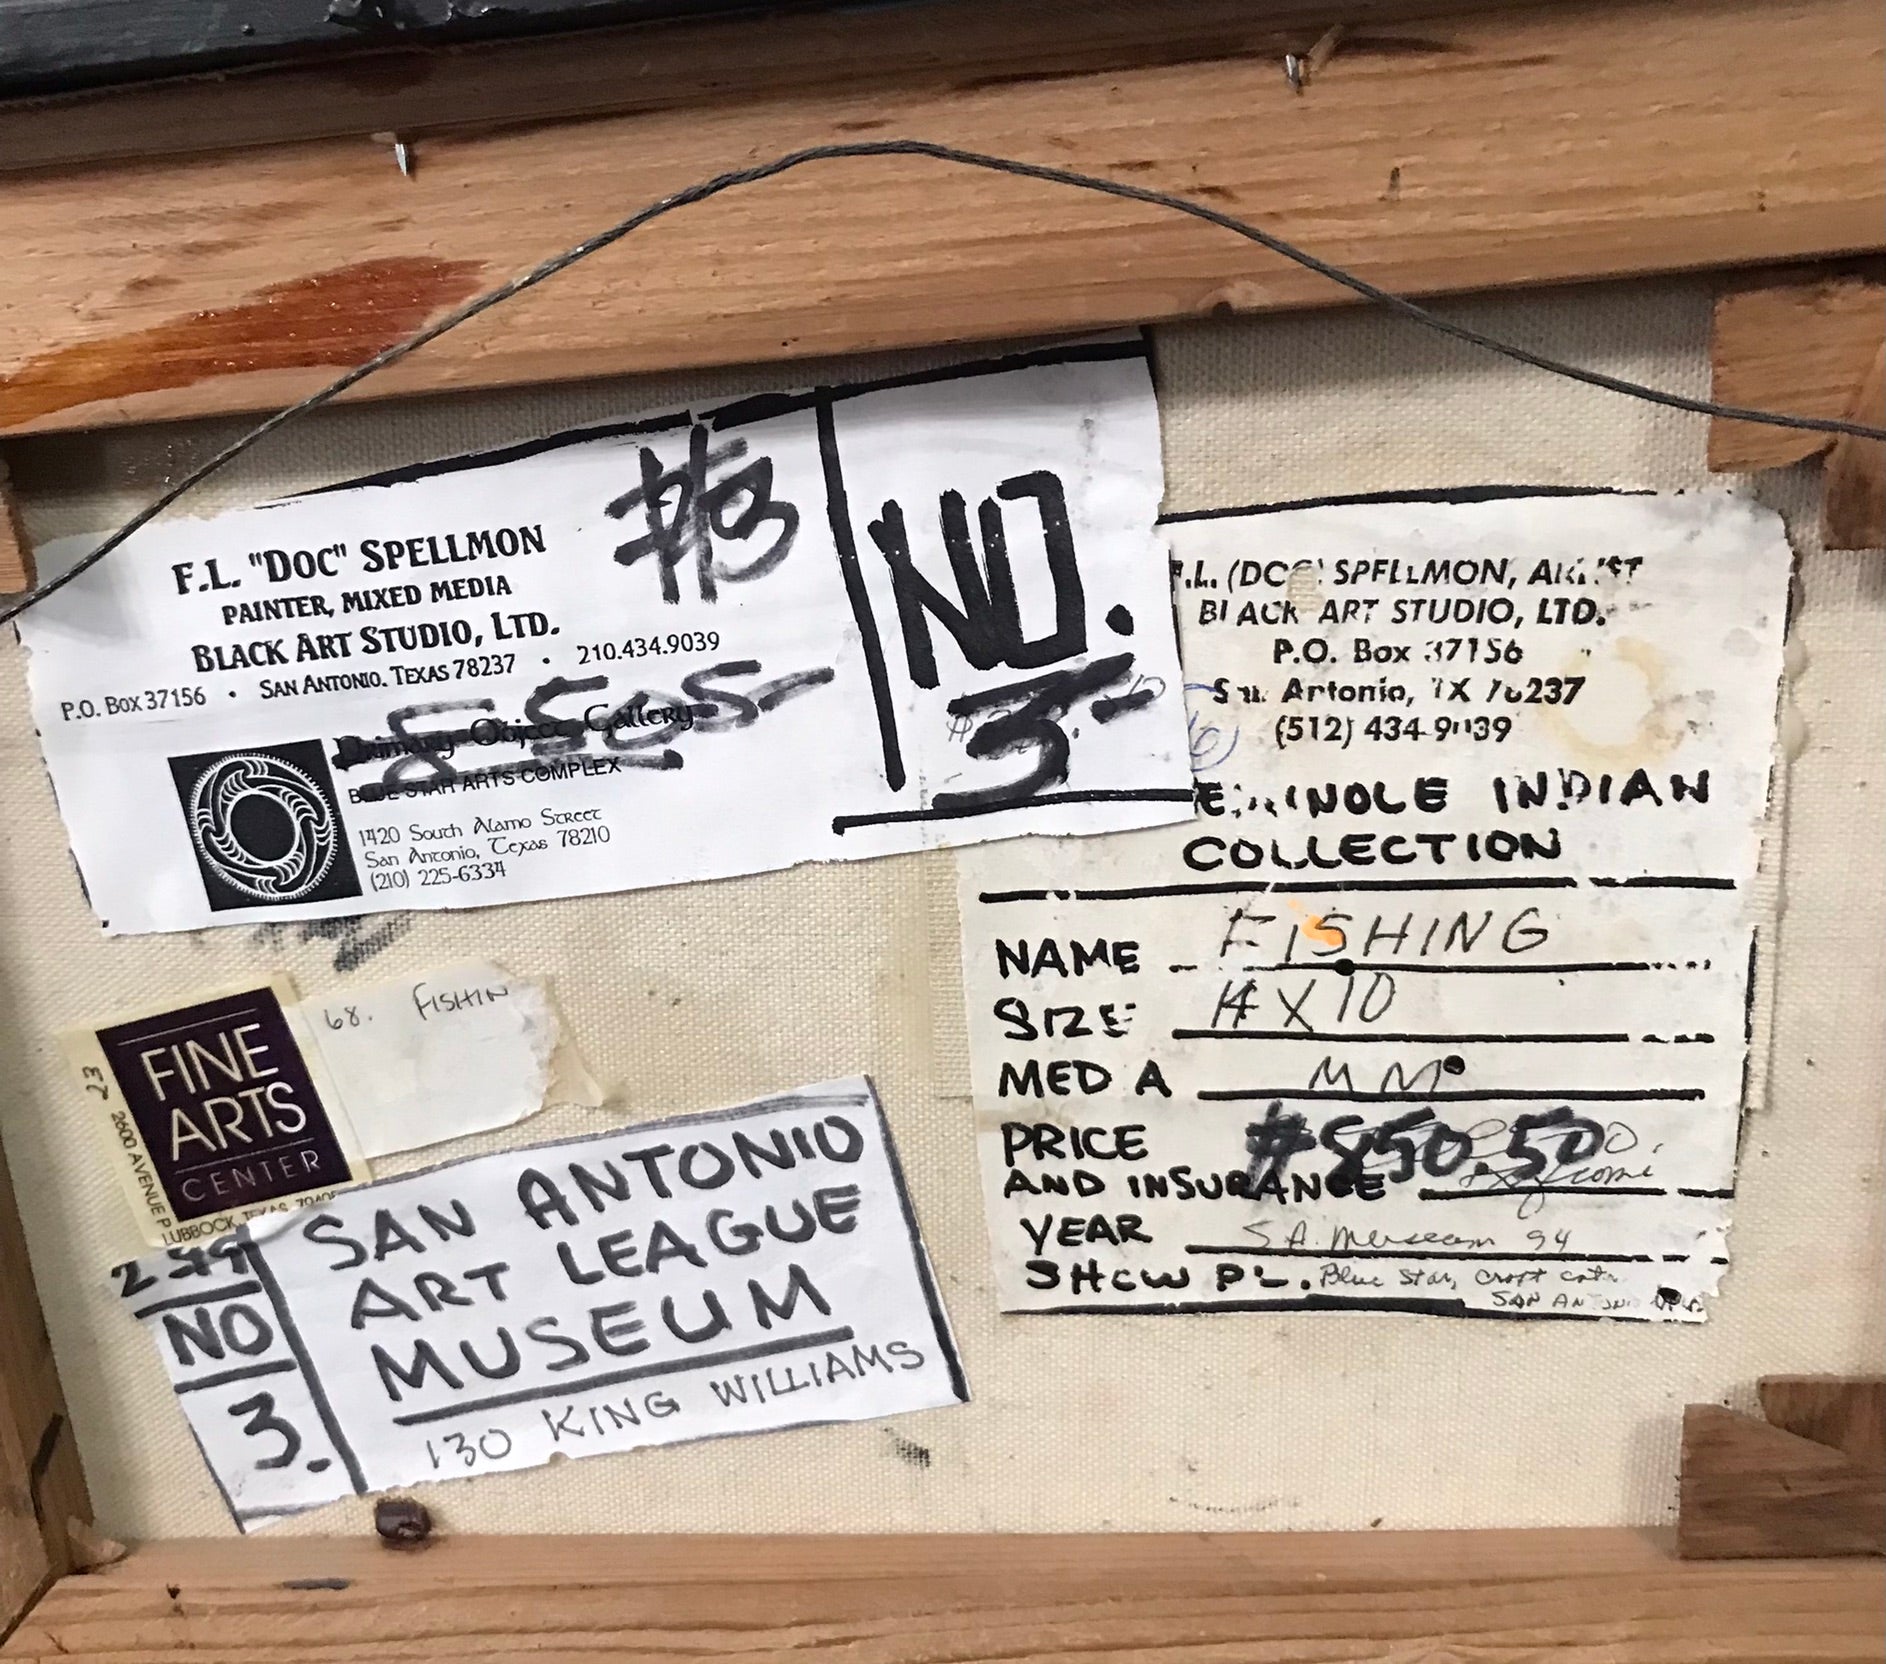 #3
F.L. "DOC" SPELLMON
PAINTER, MIXED MEDIA
BLACK ART STUDIO, LTD.
P.O. BOX 37156 • SAN ANTONIO, TEXAS 78237 • 210.434.9039
Primary Object Gallery
BLUE STAR ARTS COMPLEX
1420 South Alamo Street
San Antonio, Texas 78210
(210) 225-6334
NO.
3.
F.L. (DOC) SPELLMON, ARTIST
BLACK ART STUDIO, LTD.
P.O. Box 37156
San Antonio, TX 78237
(512) 434-9039
SEMINOLE INDIAN
COLLECTION
NAME FISHING
SIZE X 10
MEDIA MM
PRICE #850.50
AND INSURANCE
YEAR S A. Museum 94
SHOW PL. Blue Star, Craft
SAN ANTONIO
FINE
ARTS
CENTER
2600 AVENUE P
LUBBOCK, TEXAS
68. FISHIN
SAN ANTONIO
ART LEAGUE
MUSEUM
130 KING WILLIAMS
NO
3.